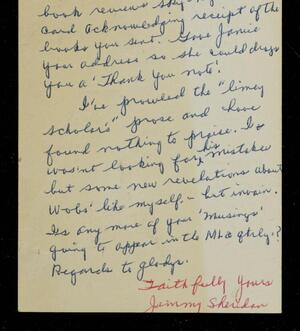 book reviews
card acknowledging receipt of the
books you sent. Gave Janie
your address so she could drop
you a 'Thank you note'.
I've prowled the "limey
scholar's" prose and have
found nothing to praise. I
wasn't looking for his mistakes
but some new revelations about
Wobs' like myself - but in vain.
Is any more of your 'musings'
going to appear in the qtrly.?
Regards to Gladys.
Faithfully Yours
Jimmy Sheridan